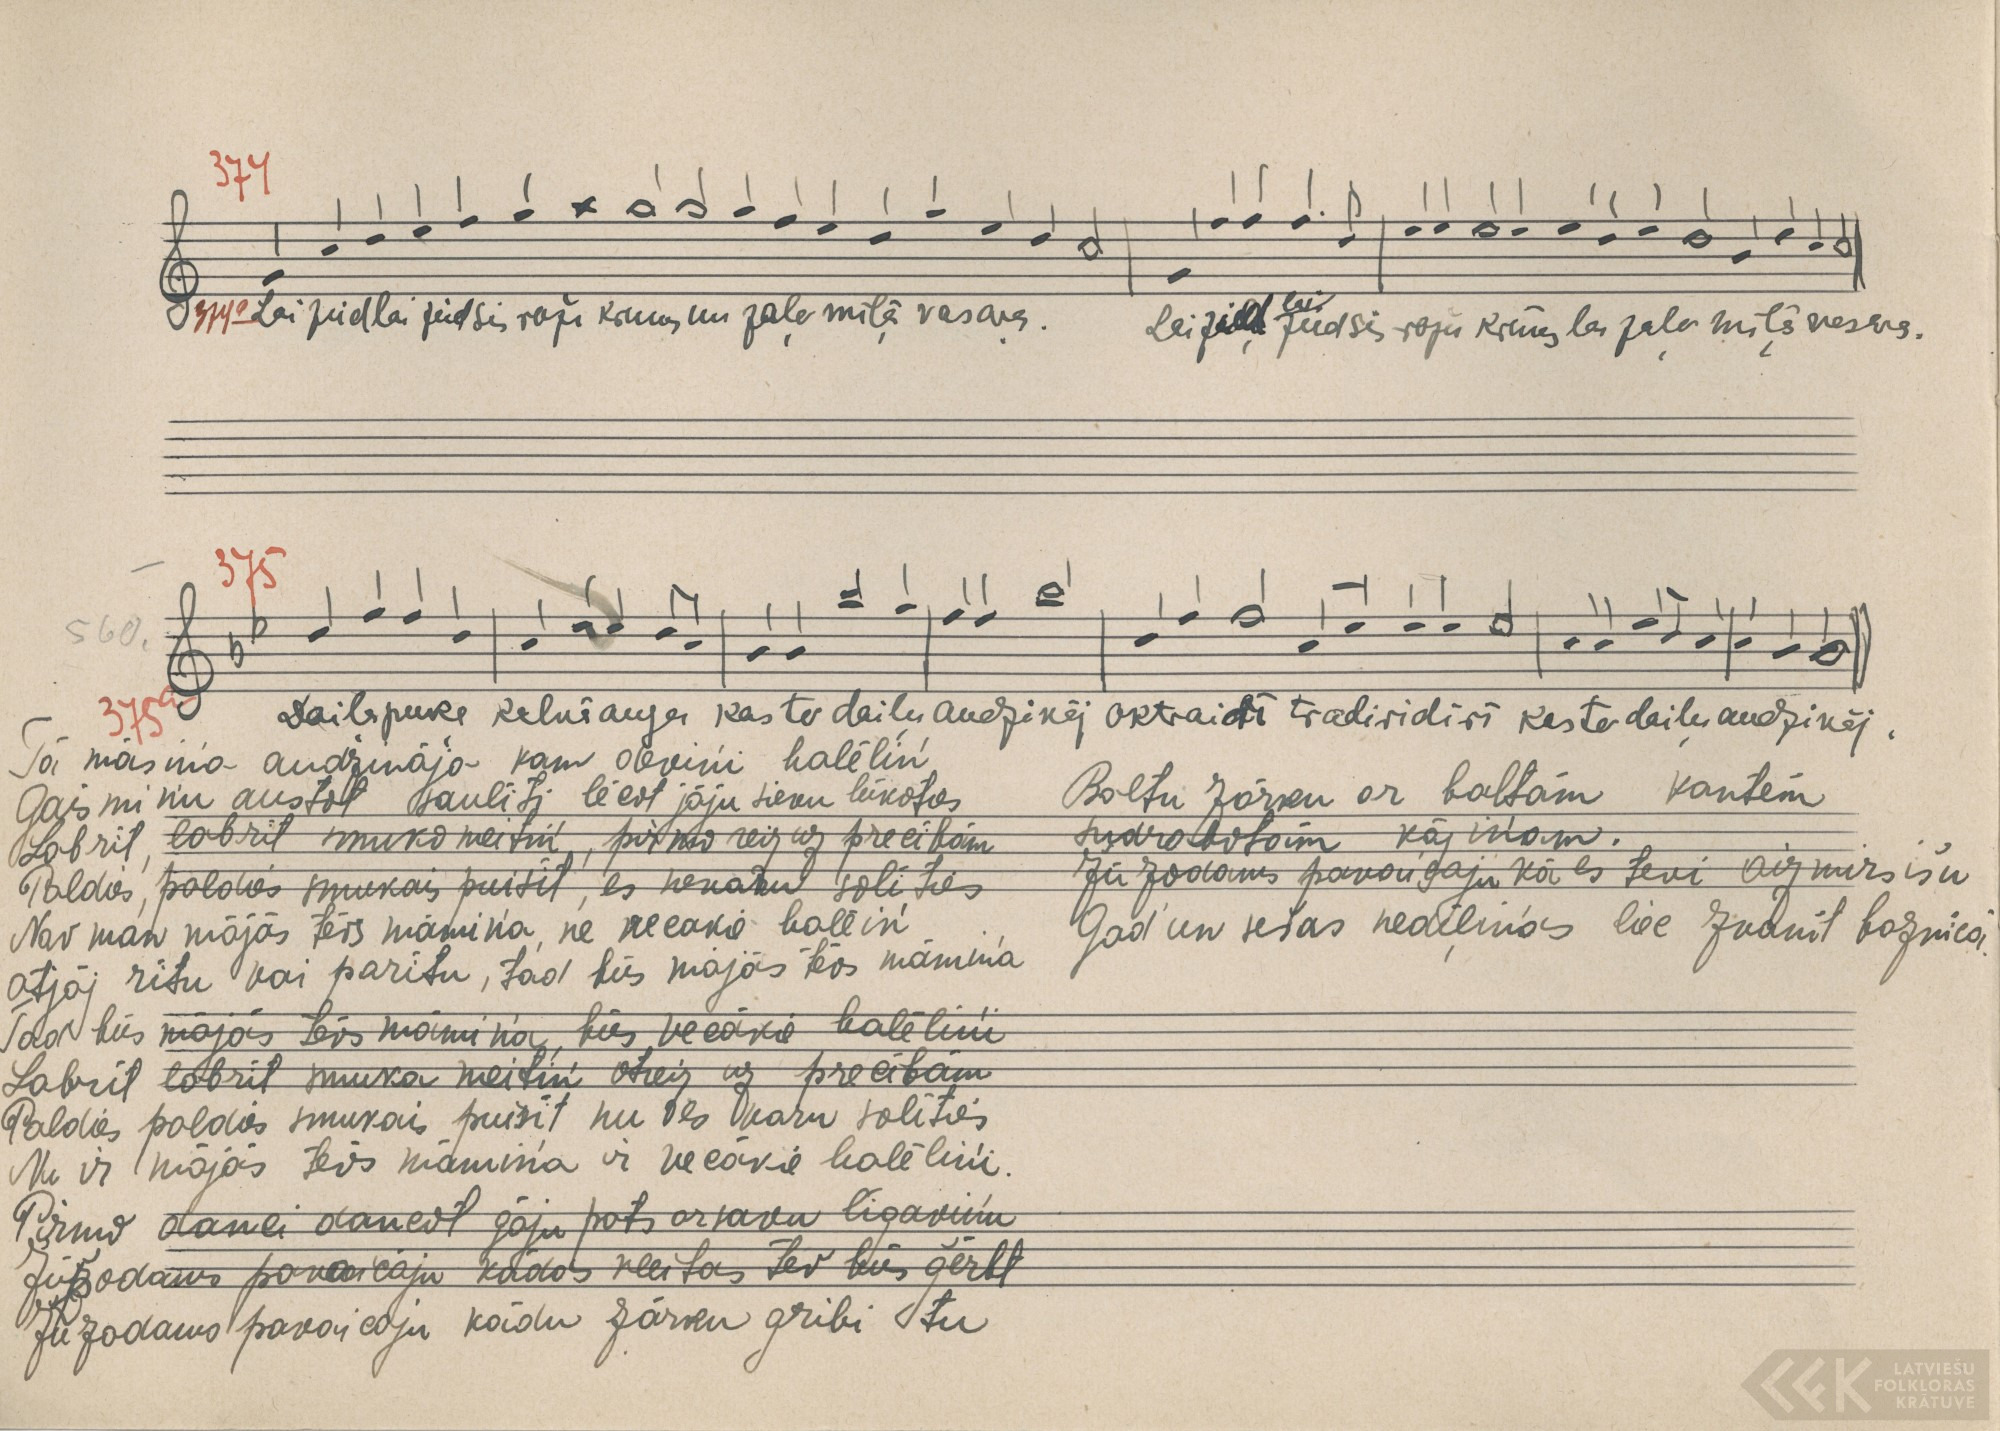 374
374a Lai zied lai ziedsis rožu krūms un zaļa mīļā vasara.
Lai zied lai ziedsis rožu krūms lai zaļa mīļā vasara.
375
560.
375a
Daila puķe kalnā auga kas to daiļu audzinēj ok traidi tradiridiri kas to daiļu audzinēj.
Tā māsiņa audzināja kam deviņi balēliņ
Gaismiņu austot saulīti lēcot jāju sievu lūkoties
Labrīt, labrīt smuko meitiņ, pirmo reiz uz precībām
Paldies, paldies smukais puisīt, es nevaru solīties
Nav man mājās tēvs māmiņa, ne vecākie balēliņ
atjāj rītu vai parītu, tad būs mājās tēvs māmiņa
Tad būs mājās tēvs māmiņa, būs vecākie balēliņi
Labrīt labrīt smuka meitiņ otreiz uz precībām
Paldies paldies smukais puisīt nu es varu solīties
Nu ir mājās tēvs māmiņa ir vecākie balēliņi.
Pirmo danci dancot gāju pats ar savu līgaviņu
pavaicāju kādas kleitas tev būs ģērbt
Jū zodams pavaicāju kādu zārku gribi tu
Boltu zārku ar baltām kantēm
sudrabotām kājiņām.
Jū zodams pavaicāju kā es tevi aizmirsīšu
Gad' un sešas nedēļiņas liec zvanīt baznīcā.
LATVIEŠU
FOLKLORAS
KRĀTUVE